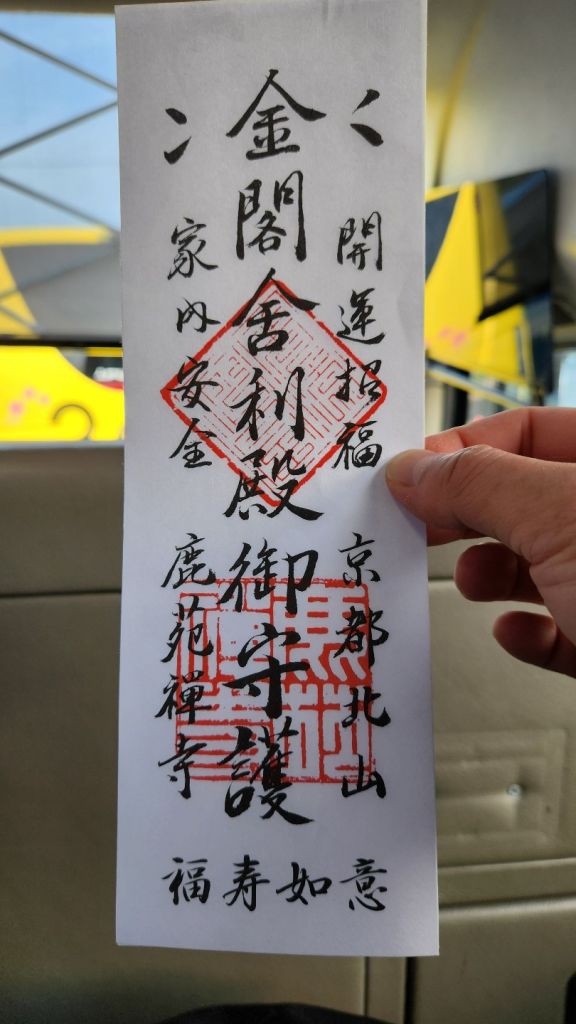 開運招福
京都北山
金閣舎利殿御守護
家内安全
鹿苑禅寺
意如寿福